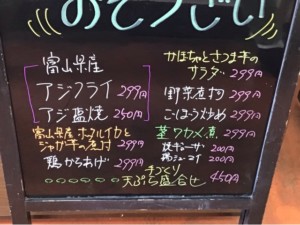 おそうざい
富山県産
アジフライ 299円
アジ塩焼 250円
富山県産ホタルイカと
ジャガ芋の煮付 299円
鶏からあげ 299円
かぼちゃとさつま芋の
サラダ 299円
野菜煮物 299円
ごぼう炒め 299円
茎ワカメ煮 299円
焼ギョーザ 200円
鶏シューマイ 200円
手づくり
天ぷら盛合せ 450円